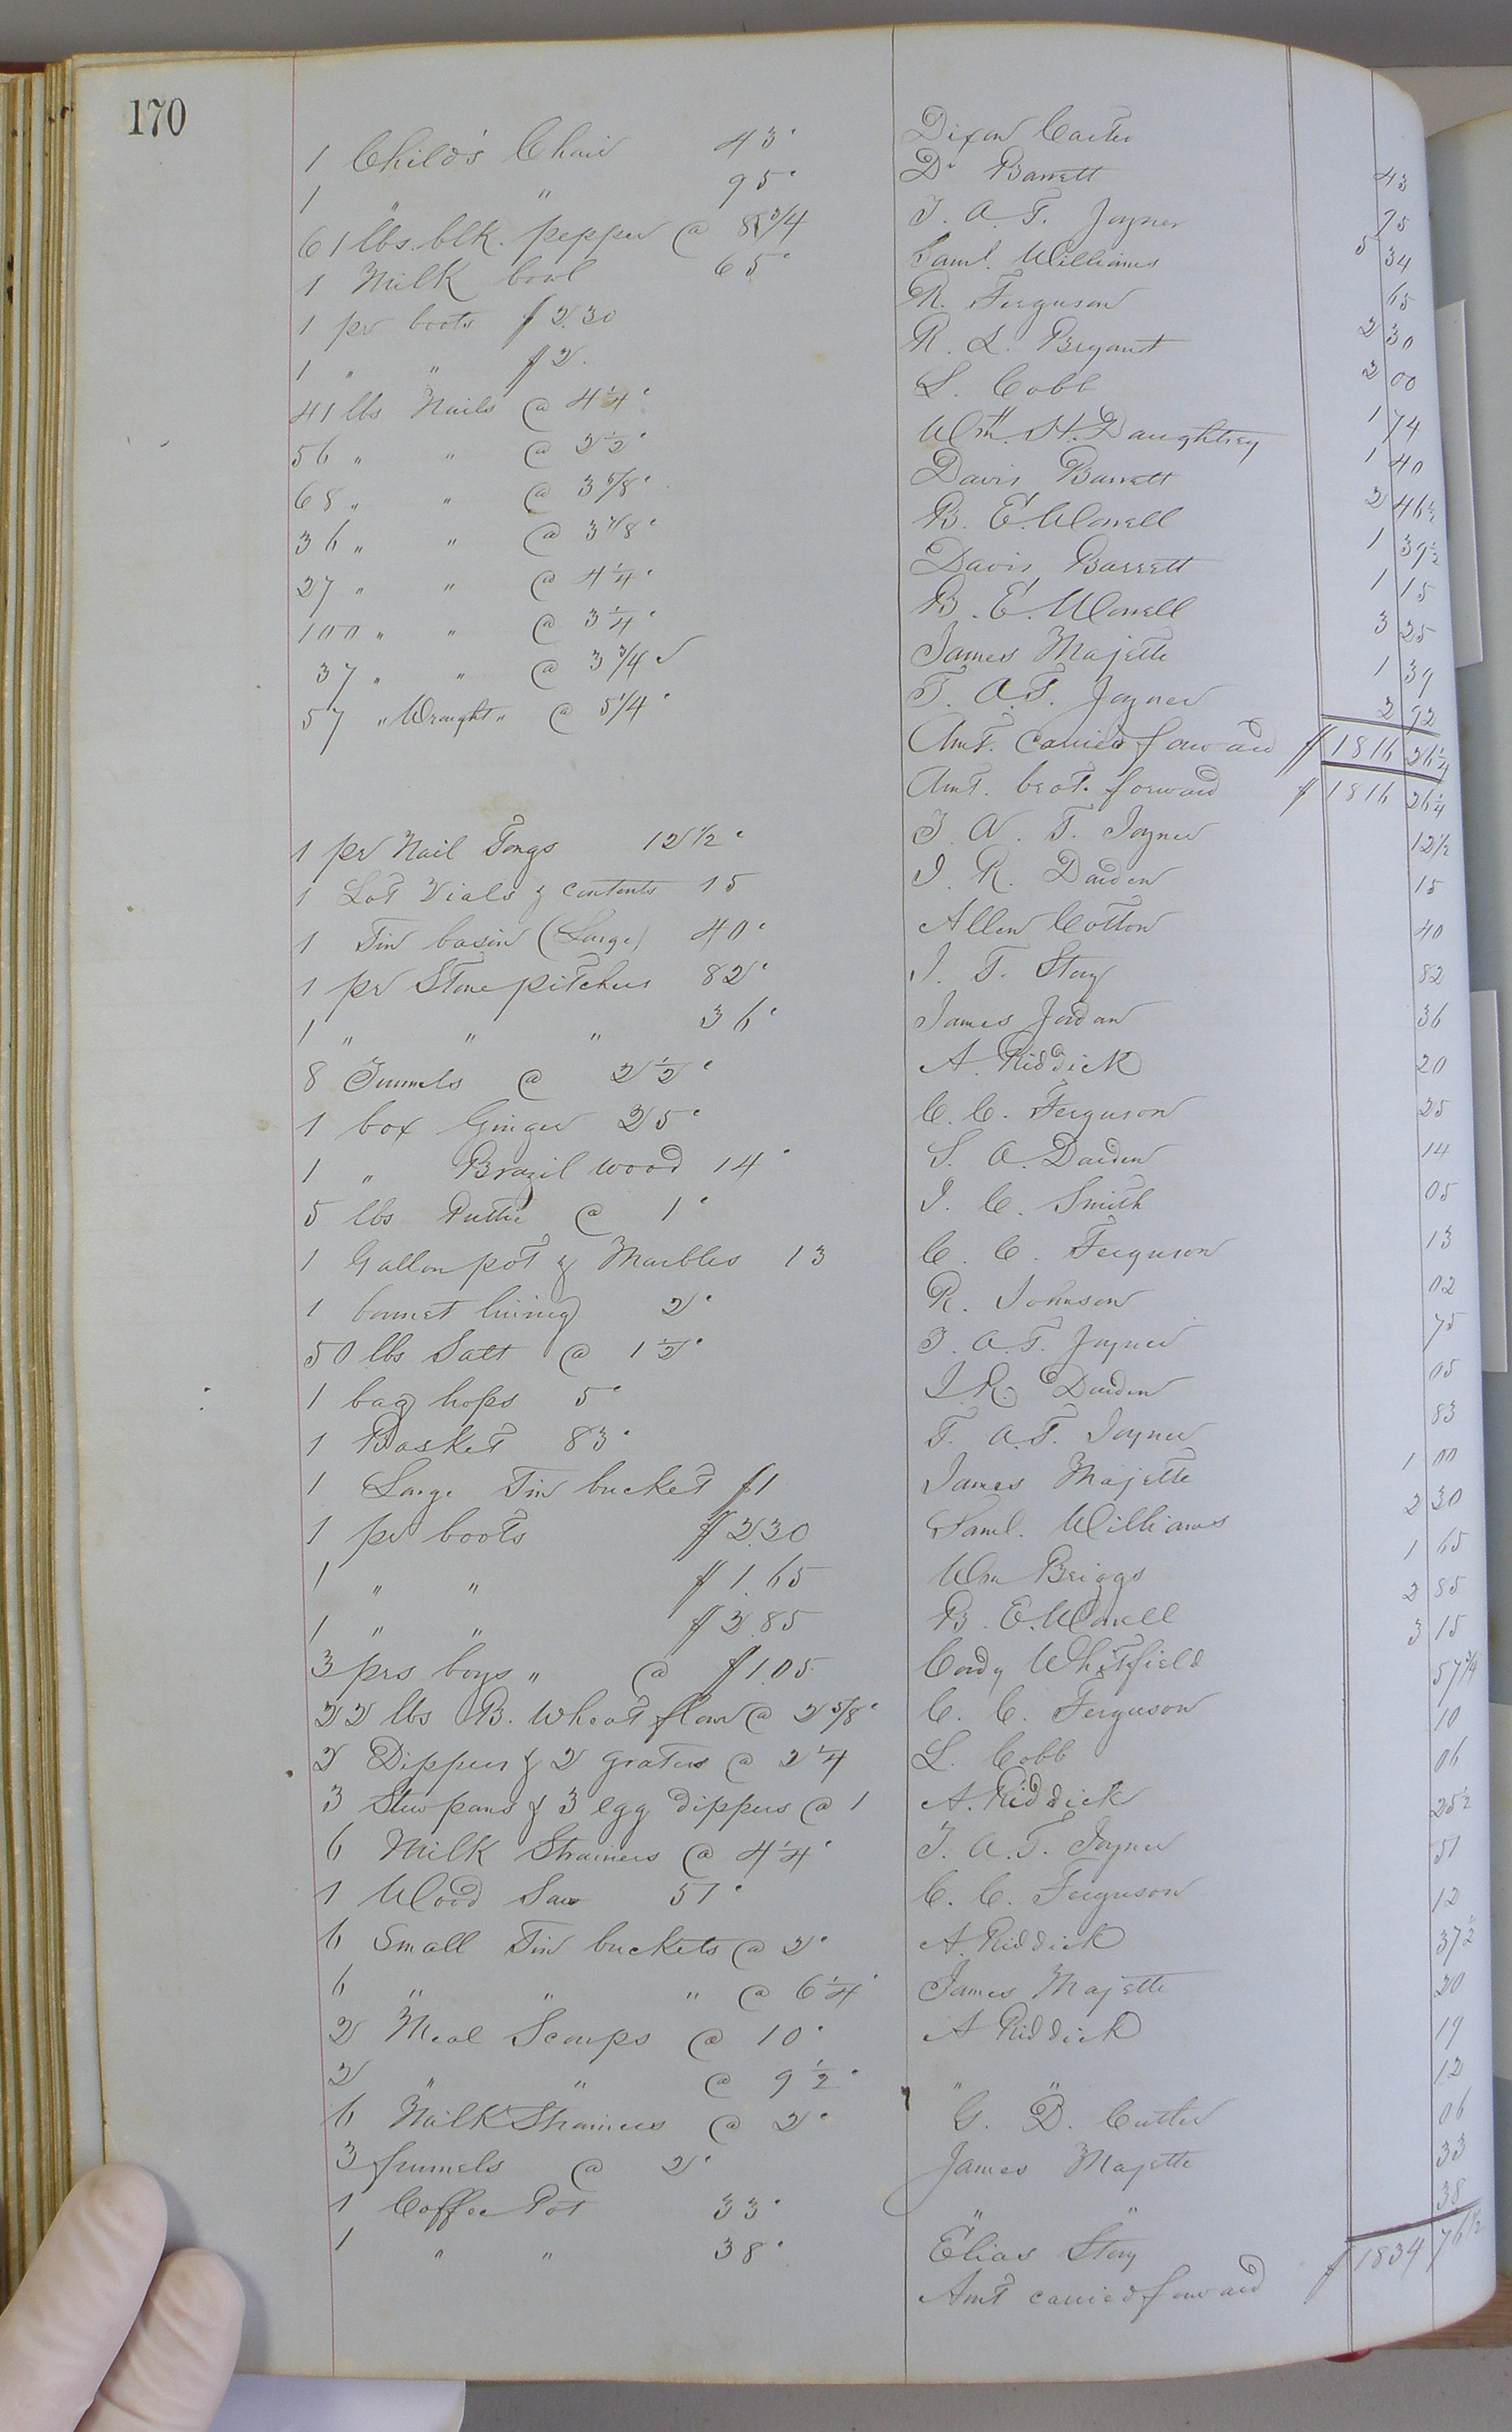 170
1 Child's Chair 43c Dixon Carter 43
1 " " 95c Dr Barrett 95
61 lbs. blk. pepper @ 8 3/4 T. A. T. Joyner 5 34
1 Milk bowl 65c Saml. Williams 65
1 pr boots $2.30 R. Ferguson 2 30
1 " " $2. R. L. Bryant 2 00
41 lbs Nails @ 4 1/4c L. Cobb 1 74
56 " " @ 2 1/2c Wm. H. Daughtrey 1 40
68 " " @ 3 5/8c Davis Barrett 2 46 1/2
36 " " @ 3 7/8c B. E. Worrell 1 39 1/2
27 " " @ 4 1/4c Davis Barrett 1 15
100 " " @ 3 1/4c B. E. Worrell 3 25
37 " " @ 3 3/4c James Majette 1 39
57 " Wrought " @ 5 1/4c T. A. T. Joyner 2 92
Amt. Carried forward $1816 26 1/4
Amt. brot. forward $1816 26 1/4
1 pr Nail Tongs 12 1/2c T. A. T. Joyner 12 1/2
1 Lot Vials & contents 15 J. R. Darden 15
1 Tin basin (Large) 40c Allen Cotton 40
1 pr Stone pitchers 82c J. T. Story 82
1 " " " 36c James Jordan 36
8 Funnels @ 2 1/2c A. Riddick 20
1 box Ginger 25c C. C. Ferguson 25
1 " Brazil wood 14c S. A. Darden 14
5 lbs Puttie @ 1c J. C. Smith 05
1 Gallon pot & Marbles 13 C. C. Ferguson 13
1 bonnet lining 2c R. Johnson 02
50 lbs Salt @ 1 1/2c T. A. T. Joyner 75
1 bag hops 5c J. R. Darden 05
1 Basket 83c T. A. T. Joyner 83
1 Large Tin bucket $1 James Majette 1 00
1 pr boots $2.30 Saml. Williams 2 30
1 " " $1.65 Wm Briggs 1 65
1 " " $2.85 B. E. Worrell 2 85
3 prs boys " @ $1.05 Cordy Whitfield 3 15
22 lbs B. Wheat flour @ 2 5/8c C. C. Ferguson 57 3/4
2 Dippers & 2 graters @ 2 1/4 L. Cobb 10
3 Stew pans & 3 egg dippers @ 1 A. Riddick 06
6 Milk Strainers @ 4 1/4c T. A. T. Joyner 25 1/2
1 Wood Saw 51c C. C. Ferguson 51
6 Small Tin buckets @ 2c A. Riddick 12
6 " " " @ 6 1/4c James Majette 37 1/2
2 Meal Scoups @ 10c A Riddick 20
2 " " @ 9 1/2c " " 19
6 Milk Strainers @ 2c G. D. Cutler 12
3 funnels @ 2c James Majette 06
1 Coffee Pot 33c " " 33
1 " " 38c Elias Story 38
Amt carried forward $1834 76 1/2